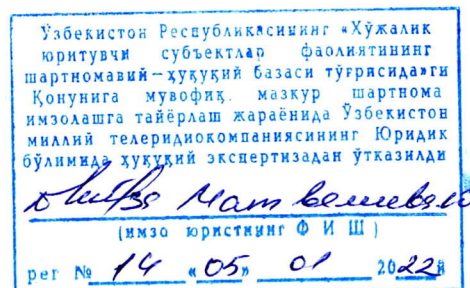 Ўзбекистон Республикасининг «Хўжалик
юритувчи субъектлар фаолиятининг
шартномавий-ҳуқуқий базаси тўғрисида»ги
Қонунига мувофиқ мазкур шартнома
имзолашга тайёрлаш жараёнида Ўзбекистон
миллий телеридиокомпаниясининг Юридик
бўлимида ҳуқуқий экспертизадан ўтказилди
(имзо юристнинг Ф И Ш)
рег № 14 «05» 01 2022й